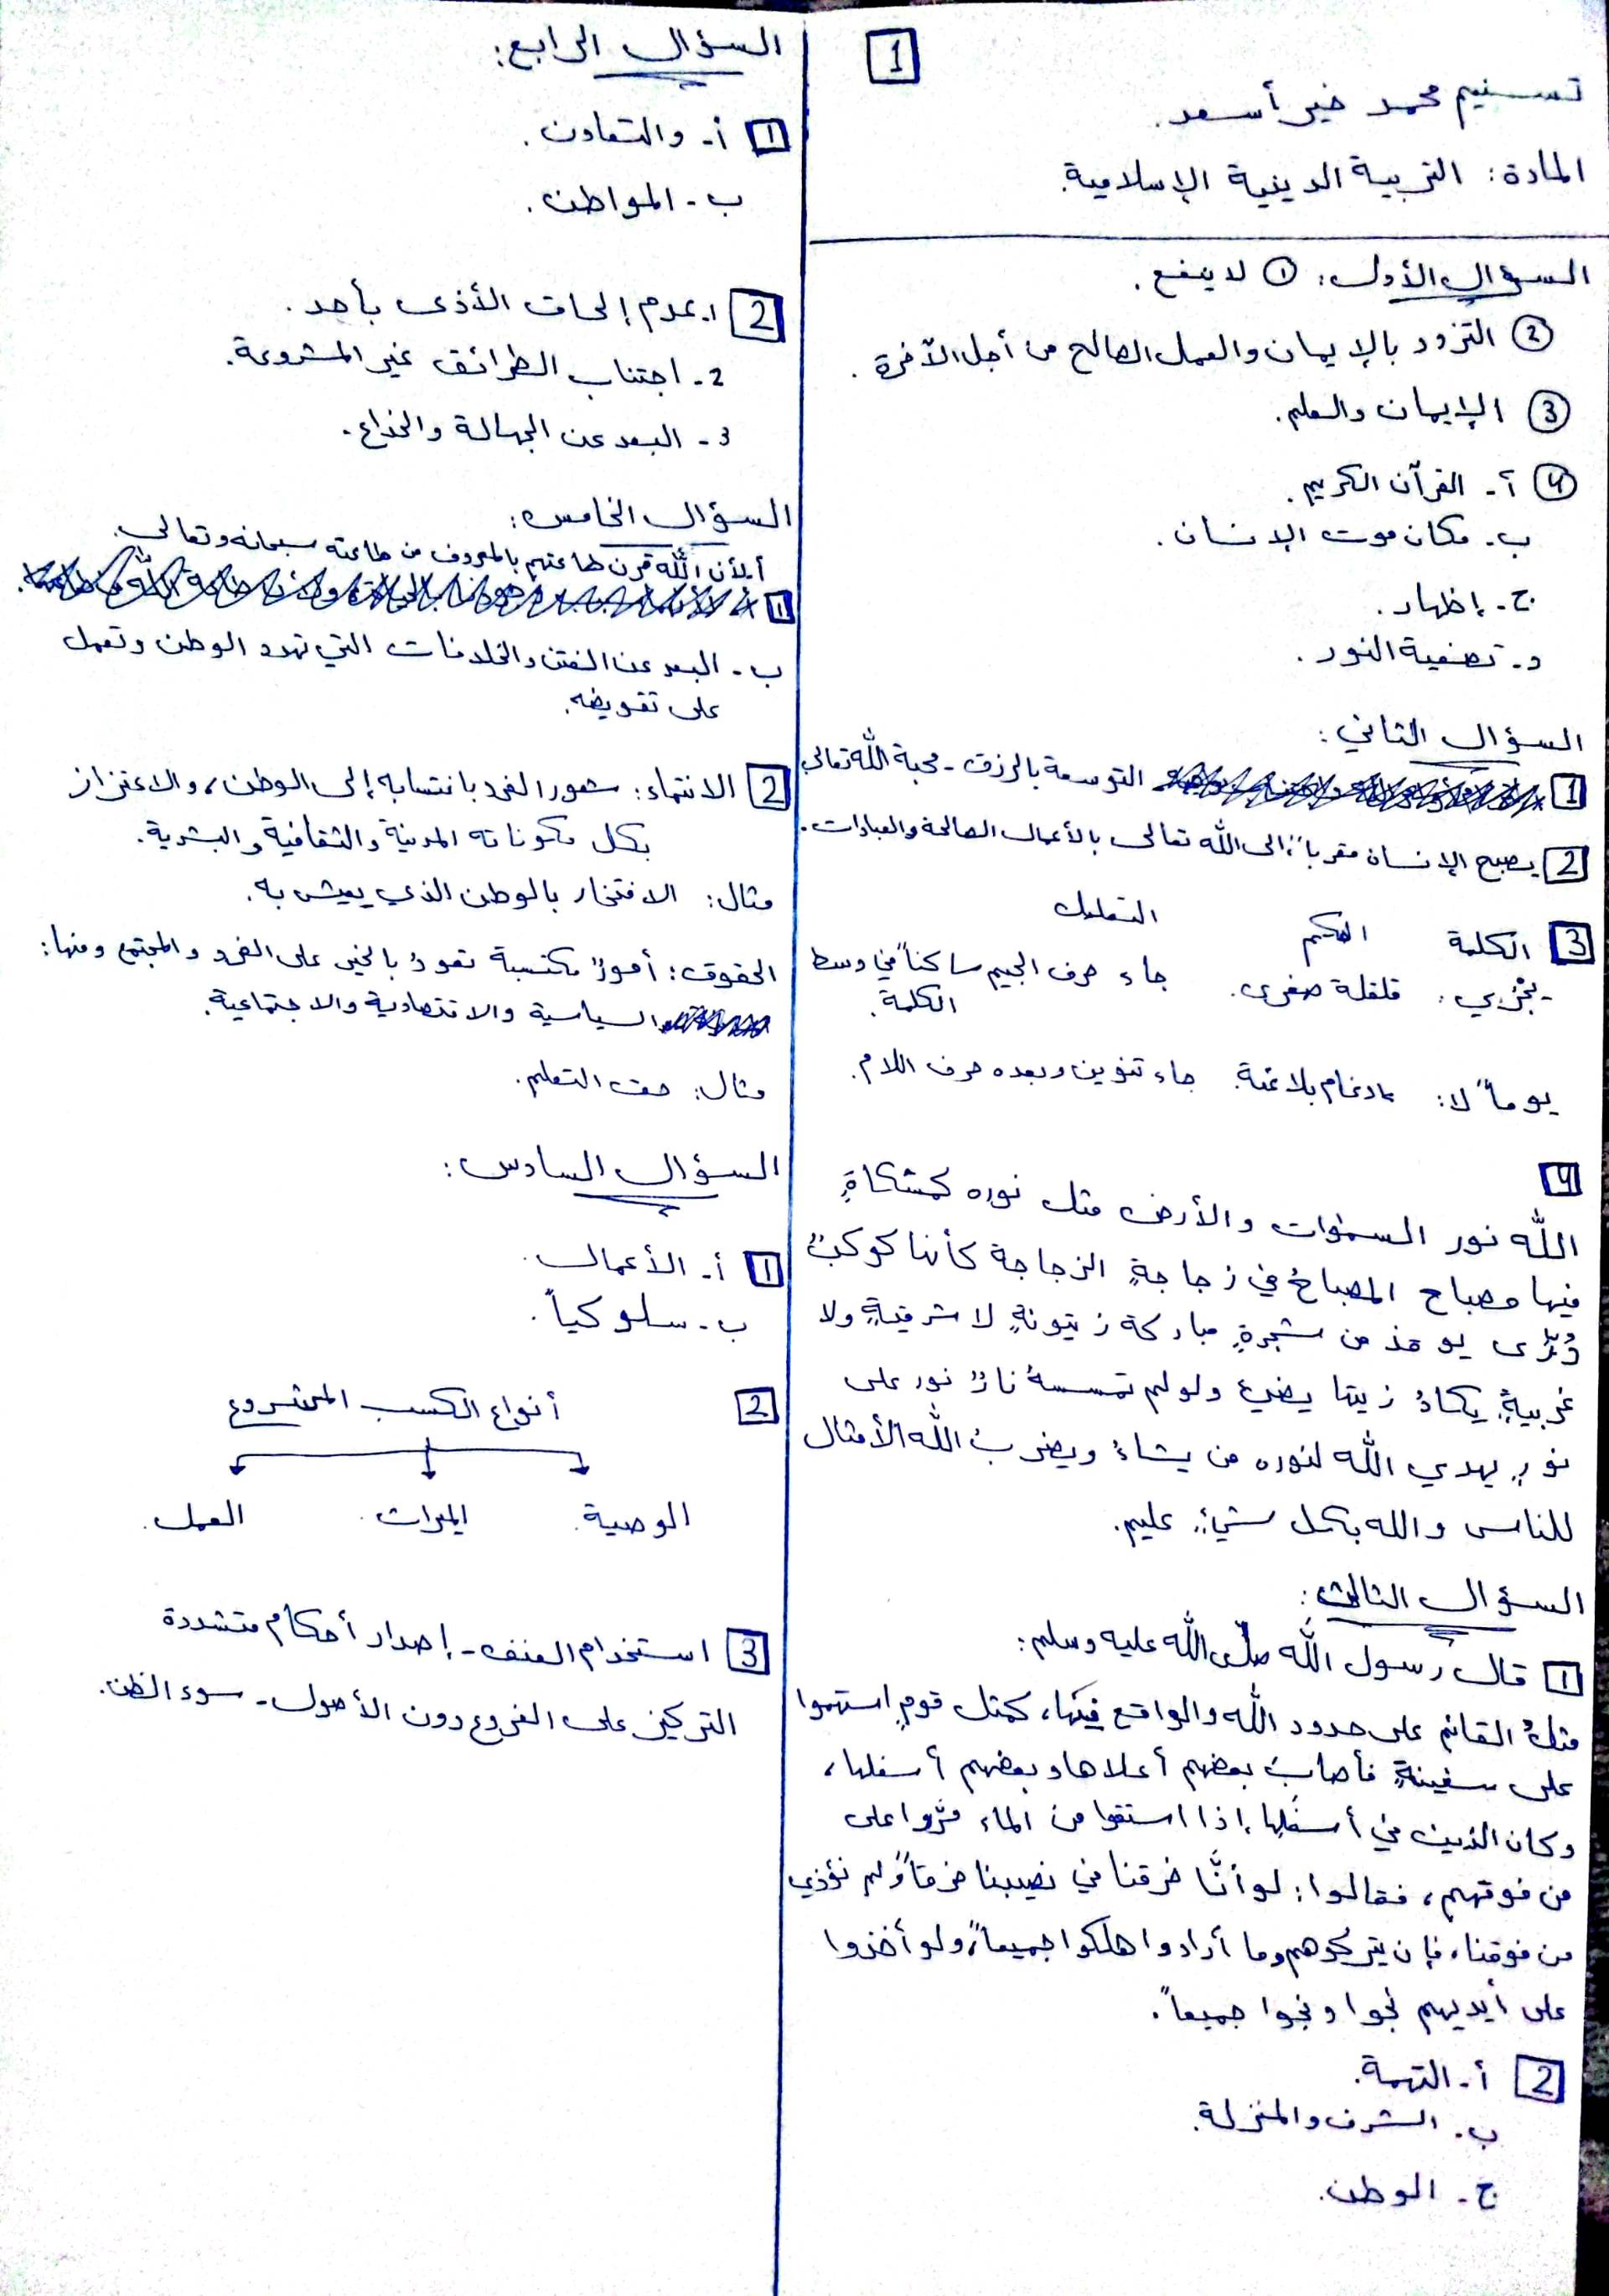 1
تسنيم محمد خير أسعد.
المادة: التربية الدينية الإسلامية.
السؤال الأول: ① لا ينفع.
② التزود بالإيمان والعمل الصالح من أجل الآخرة.
③ الإيمان والعلم.
④ أ- القرآن الكريم.
ب- مكان موت الإنسان.
ج- إظهار.
د- تصفية النور.
السؤال الثاني:
1 التوسعة بالرزق - محبة الله تعالى
2 يصبح الإنسان مقرباً إلى الله تعالى بالأعمال الصالحة والعبادات.
3 الكلمة الحكم التعليل
- يجْزي: قلقلة صغرى. جاء حرف الجيم ساكناً في وسط
الكلمة.
يوماً لا: إدغام بلا غنة. جاء تنوين وبعده حرف اللام.
4
الله نور السموات والأرض مثل نوره كمشكاةٍ
فيها مصباح المصباحُ في زجاجةٍ الزجاجة كأنها كوكبٌ
دُرّى يوقد من شجرةٍ مباركة زيتونةٍ لا شرقيةٍ ولا
غربيةٍ يكادُ زيتها يضيء ولو لم تمسسهُ نارٌ نور على
نورٍ يهدي الله لنوره من يشاءُ ويضربُ الله الأمثال
للناس والله بكل شيءٍ عليم.
السؤال الثالث:
1 قال رسول الله صلّى الله عليه وسلم:
مثلُ القائم على حدود الله والواقع فيها، كمثل قومٍ استهموا
على سفينةٍ فأصابَ بعضهم أعلاها وبعضهم أسفلها،
وكان الذين في أسفلها إذا استقوا من الماء مرّوا على
من فوقهم، فقالوا: لو أنَّا خرقنا في نصيبنا خرقاً ولم نؤذي
من فوقنا، فإن يتركوهم وما أرادوا هلكوا جميعاً، ولو أخذوا
على أيديهم نجوا ونجوا جميعاً.
2 أ- التهمة.
ب- الشرف والمنزلة.
ج- الوطن.
السؤال الرابع:
1 أ- والتعاون.
ب- المواطن.
2 1- عدم إلحاق الأذى بأحد.
2- اجتناب الطرائق غير المشروعة.
3- البعد عن الجهالة والخداع.
السؤال الخامس:
أ- لأن الله قرن طاعتهم بالمعروف من طاعته سبحانه وتعالى.
1
ب- البعد عن الفتن والخلافات التي تهدد الوطن وتعمل
على تقويضه.
2 الانتماء: شعور الفرد بانتسابه إلى الوطن، والاعتزاز
بكل مكوناته المدنية والثقافية والبشرية.
مثال: الافتخار بالوطن الذي يعيش به.
الحقوق: أمورٌ مكتسبة تعودُ بالخير على الفرد والمجتمع ومنها:
السياسية والاقتصادية والاجتماعية.
مثال: حق التعليم.
السؤال السادس:
1 أ- الأعمال.
ب- سلوكياً.
2 أنواع الكسب المشروع
الوصية. الميراث. العمل.
3 استخدام العنف - إصدار أحكام متشددة
التركيز على الفروع دون الأصول - سوء الظن.